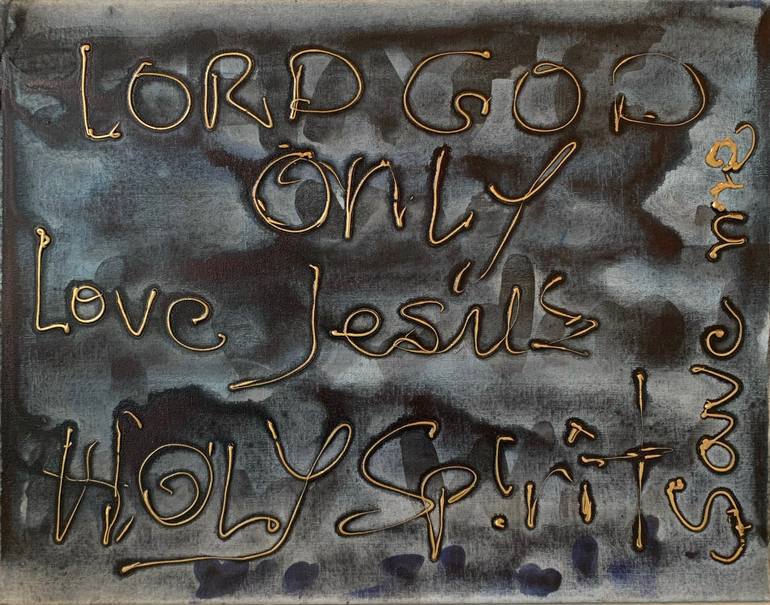 LORD GOD
ONLY
Love Jesus
HOLY Spirit
save me